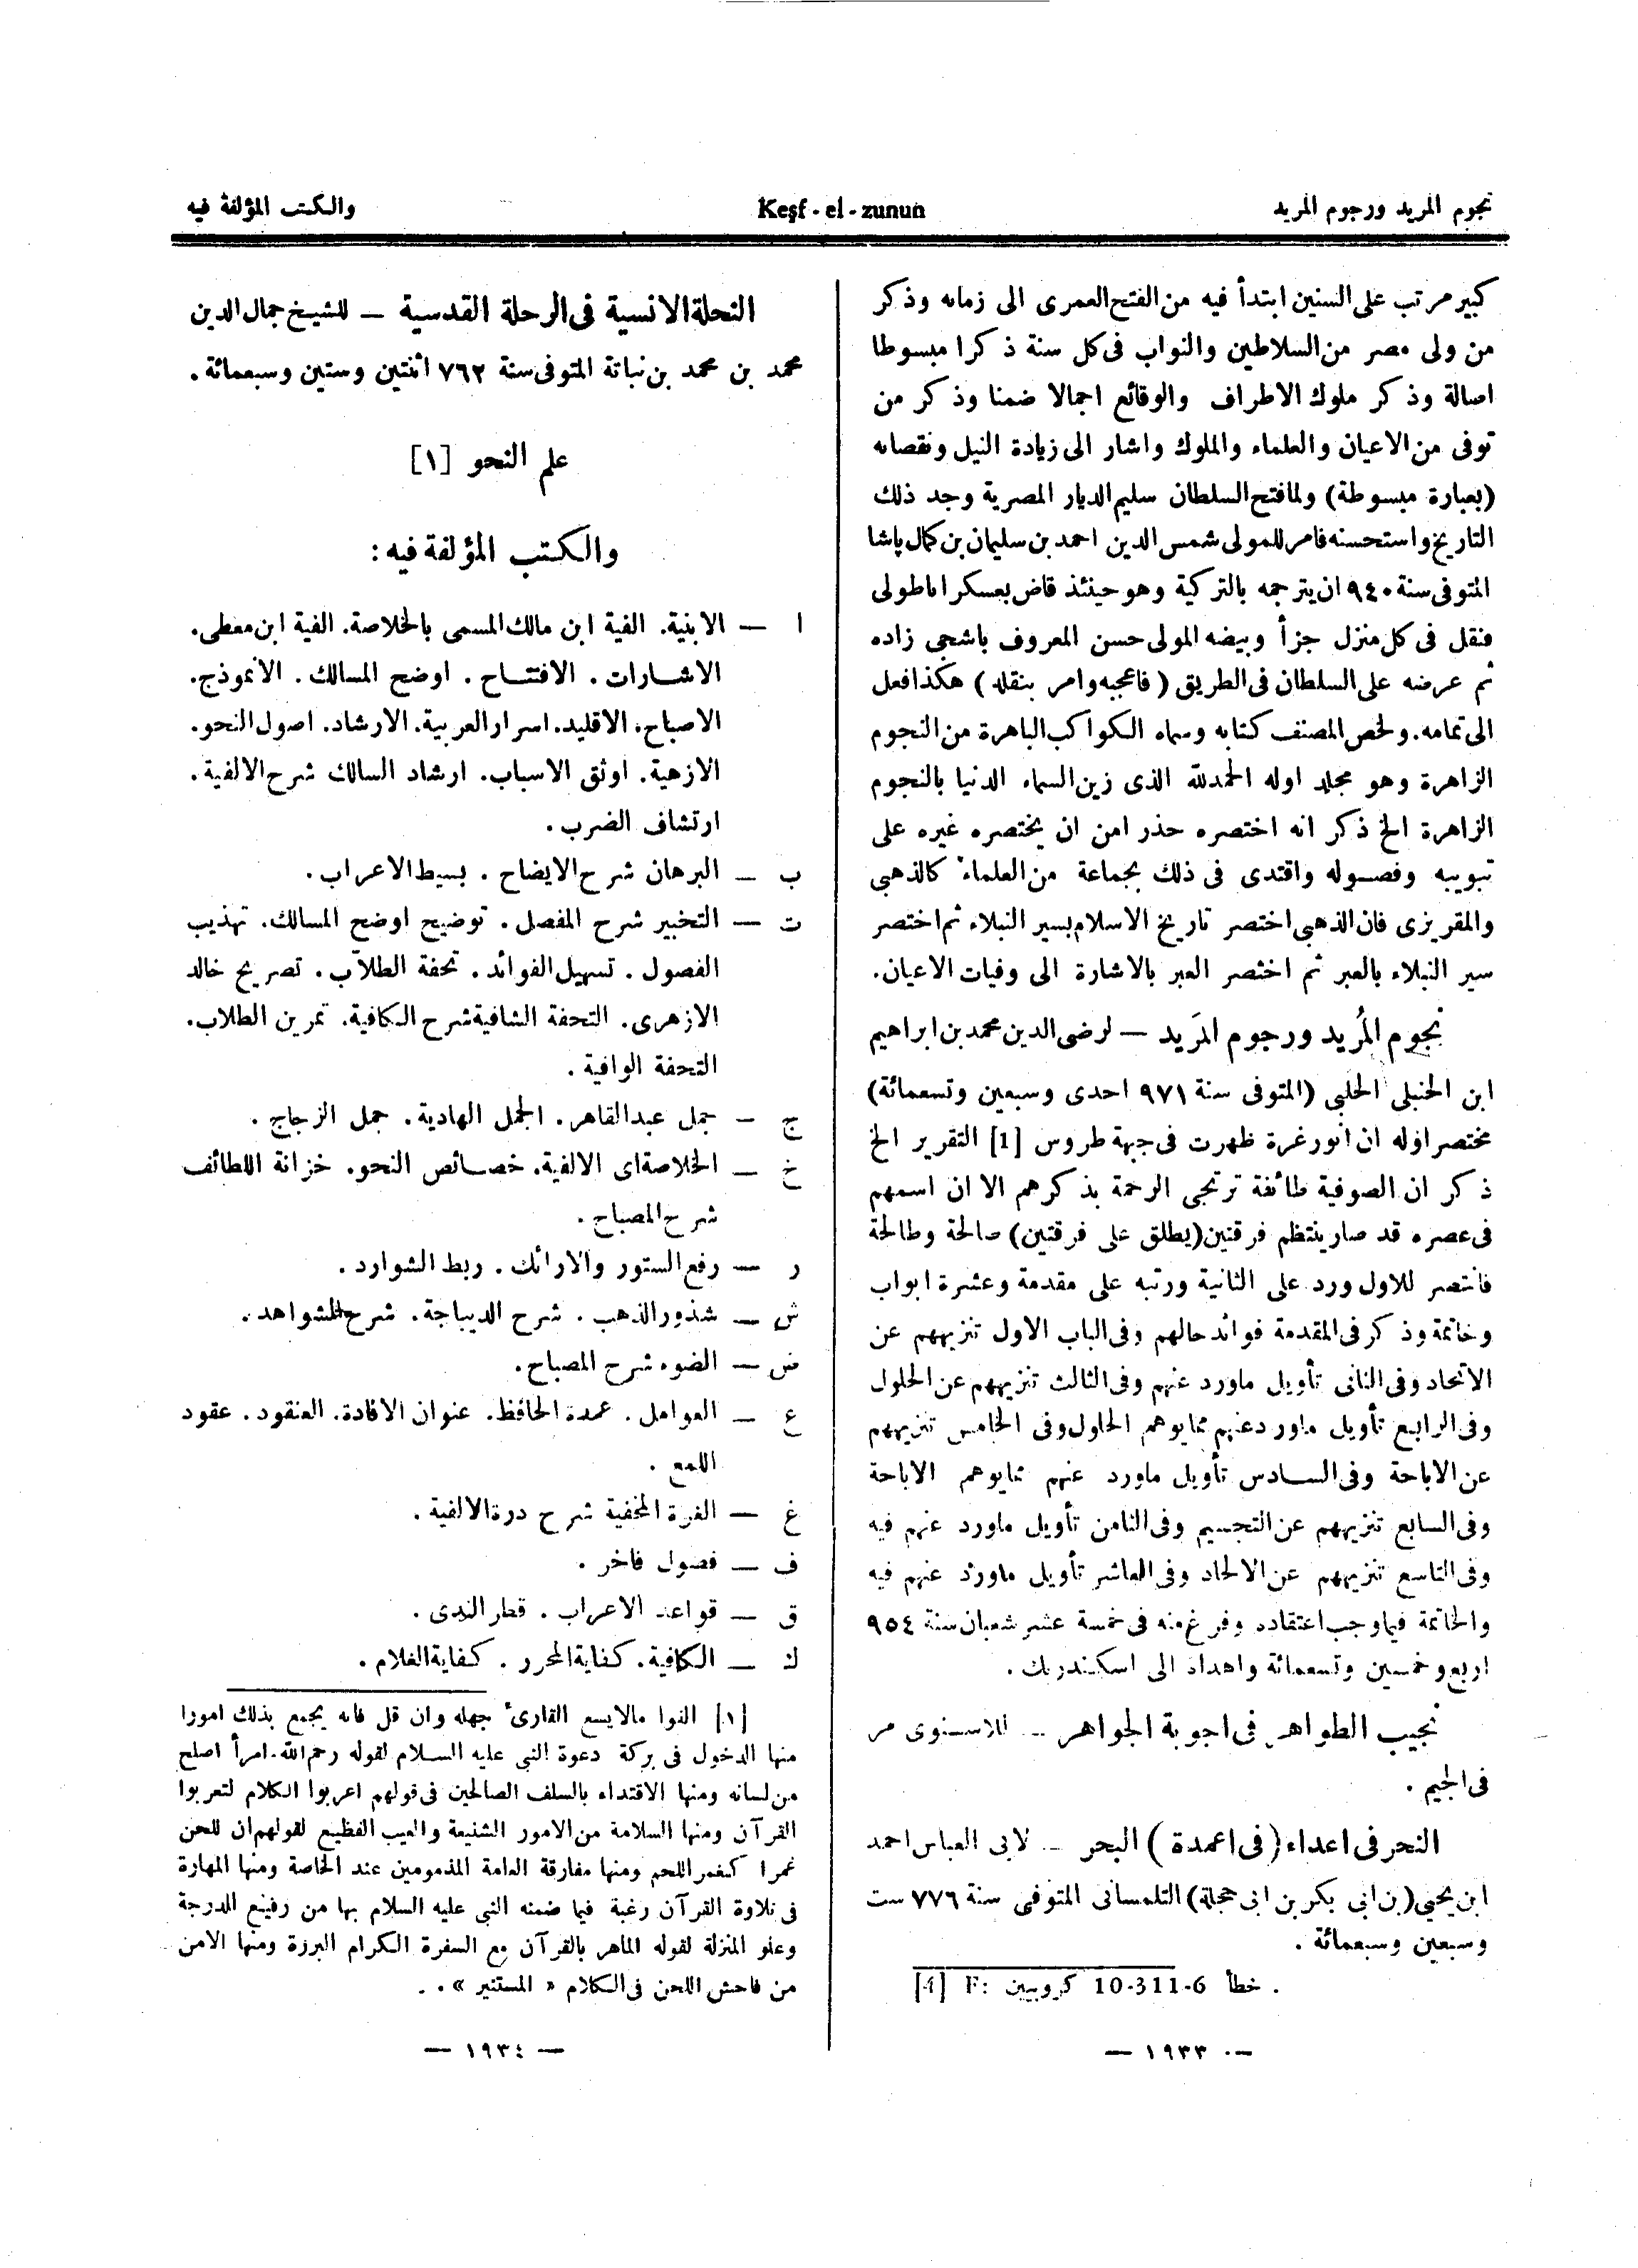 نجوم المريد ورجوم المريد
Keşf - el - zunun
والكتب المؤلفة فيه
كبير مرتب على السنين ابتدأ فيه من الفتح العمرى الى زمانه وذكر
من ولى مصر من السلاطين والنواب فى كل سنة ذكرا مبسوطا
اصالة وذكر ملوك الاطراف والوقائع اجمالا ضمنا وذكر من
توفى من الاعيان والعلماء والملوك واشار الى زيادة النيل ونقصانه
(بعبارة مبسوطة) ولما فتح السلطان سليم الديار المصرية وجد ذلك
التاريخ واستحسنه فامر للمولى شمس الدين احمد بن سليمان بن كمال پاشا
المتوفى سنة ٩٤٠ ان يترجمه بالتركية وهو حينئذ قاض بعسكر اناطولى
فنقل فى كل منزل جزأ وبيضه المولى حسن المعروف باشجى زاده
ثم عرضه على السلطان فى الطريق (فاعجبه وامر بنقله) هكذا فعل
الى تمامه. ولخص المصنف كتابه وسماه الكواكب الباهرة من النجوم
الزاهرة وهو مجلد اوله الحمدلله الذى زين السماء الدنيا بالنجوم
الزاهرة الخ ذكر انه اختصره حذر امن ان يختصره غيره على
تبويبه وفصوله واقتدى فى ذلك بجماعة من العلماء كالذهبى
والمقريزى فان الذهبى اختصر تاريخ الاسلام بسير النبلاء ثم اختصر
سير النبلاء بالعبر ثم اختصر العبر بالاشارة الى وفيات الاعيان.
نجوم المُريد ورجوم المَريد — لرضى الدين محمد بن ابراهيم
ابن الحنبلى الحلبى (المتوفى سنة ٩٧١ احدى وسبعين وتسعمائة)
مختصر اوله ان انور غرة ظهرت فى جبهة طروس [1] التقرير الخ
ذكر ان الصوفية طائفة ترتجى الرحمة بذكرهم الا ان اسمهم
فى عصره قد صار ينتظم فرقتين (يطلق على فرقتين) صالحة وطالحة
فانتصر للاول ورد على الثانية ورتبه على مقدمة وعشرة ابواب
وخاتمة وذكر فى المقدمة فوائد حالهم وفى الباب الاول تنزيههم عن
الاتحاد وفى الثانى تأويل ماورد عنهم وفى الثالث تنزيههم عن الحلول
وفى الرابع تأويل ماورد عنهم مما يوهم الحلول وفى الخامس تنزيههم
عن الاباحة وفى السادس تأويل ماورد عنهم مما يوهم الاباحة
وفى السابع تنزيههم عن التجسيم وفى الثامن تأويل ماورد عنهم فيه
وفى التاسع تنزيههم عن الالحاد وفى العاشر تأويل ماورد عنهم فيه
والخاتمة فيما وجب اعتقاده وفرغ منه فى خمسة عشر شعبان سنة ٩٥٤
اربع وخمسين وتسعمائة واهداه الى اسكندر بك.
نجيب الطواهر فى اجوبة الجواهر — للاسنوى مر
فى الجيم.
النحر فى اعداء (فى اعمدة) البحر — لابى العباس احمد
ابن يحيى (بن ابى بكر بن ابى حجلة) التلمسانى المتوفى سنة ٧٧٦ ست
وسبعين وسبعمائة.
[1] F: كروبيين 10-311-6 خطأ.
— ١٩٣٣ —
النحلة الانسية فى الرحلة القدسية — للشيخ جمال الدين
محمد بن محمد بن نباتة المتوفى سنة ٧٦٢ اثنتين وستين وسبعمائة.
علم النحو [١]
والكتب المؤلفة فيه:
ا — الابنية. الفية ابن مالك المسمى بالخلاصة. الفية ابن معطى.
الاشارات. الافتتاح. اوضح المسالك. الانموذج.
الاصباح. الاقليد. اسرار العربية. الارشاد. اصول النحو.
الازهية. اوثق الاسباب. ارشاد السالك شرح الالفية.
ارتشاف الضرب.
ب — البرهان شرح الايضاح. بسيط الاعراب.
ت — التخبير شرح المفصل. توضيح اوضح المسالك. تهذيب
الفصول. تسهيل الفوائد. تحفة الطلاب. تصريح خالد
الازهرى. التحفة الشافية شرح الكافية. تمرين الطلاب.
التحفة الوافية.
ج — جمل عبدالقاهر. الجمل الهادية. جمل الزجاج.
خ — الخلاصة اى الالفية. خصائص النحو. خزانة اللطائف
شرح المصباح.
ر — رفع الستور والارائك. ربط الشوارد.
ش — شذور الذهب. شرح الديباجة. شرح الشواهد.
ض — الضوء شرح المصباح.
ع — العوامل. عمدة الحافظ. عنوان الافادة. العنقود. عقود
اللمع.
غ — الغرة المخفية شرح درة الالفية.
ف — فصول فاخر.
ق — قواعد الاعراب. قطر الندى.
ك — الكافية. كفاية المحرر. كفاية الغلام.
[١] الفوا مالايسع القارئ جهله وان قل فانه يجمع بذلك امورا
منها الدخول فى بركة دعوة النبى عليه السلام لقوله رحم الله. امرأ اصلح
من لسانه ومنها الاقتداء بالسلف الصالحين فى قولهم اعربوا الكلام لتعربوا
القرآن ومنها السلامة من الامور الشنيعة والعيب الفظيع لقولهم ان للحن
غمرا كغمر اللحم ومنها مفارقة العامة المذمومين عند الخاصة ومنها المهارة
فى تلاوة القرآن رغبة فيما ضمنه النبى عليه السلام بها من رفيع الدرجة
وعلو المنزلة لقوله الماهر بالقرآن مع السفرة الكرام البررة ومنها الامن
من فاحش اللحن فى الكلام « المستنير ».
— ١٩٣٤ —